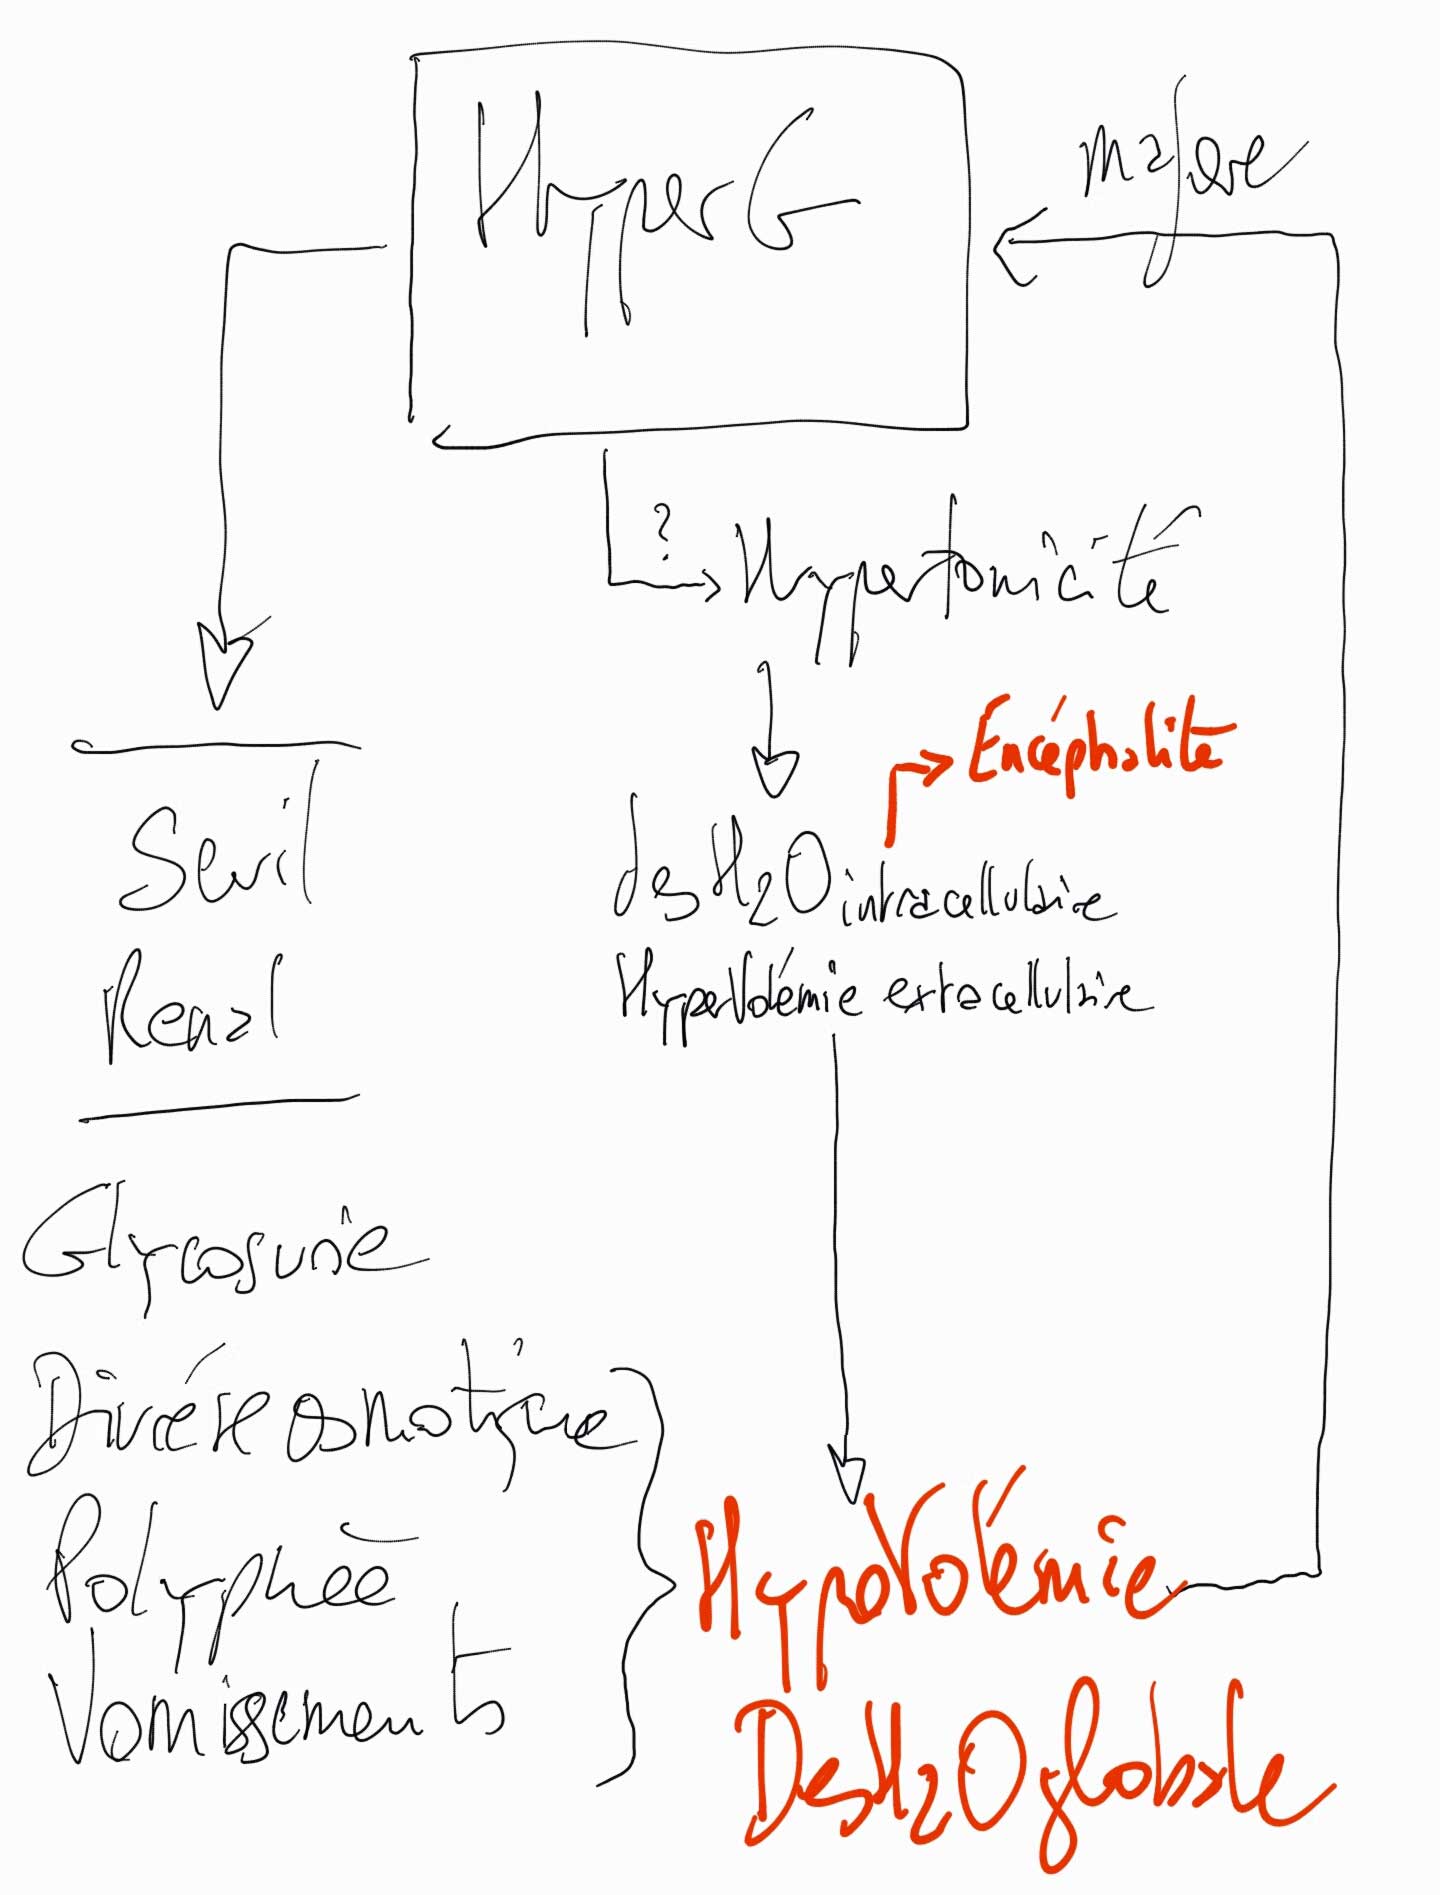 HyperG
majore
?
Hypertonicité
Encéphalite
desH2O intracellulaire
HyperVolémie extracellulaire
Seuil
Renal
Glycosurie
Diurèse osmotique
Vomissements
HypoVolémie
DesH2O globale